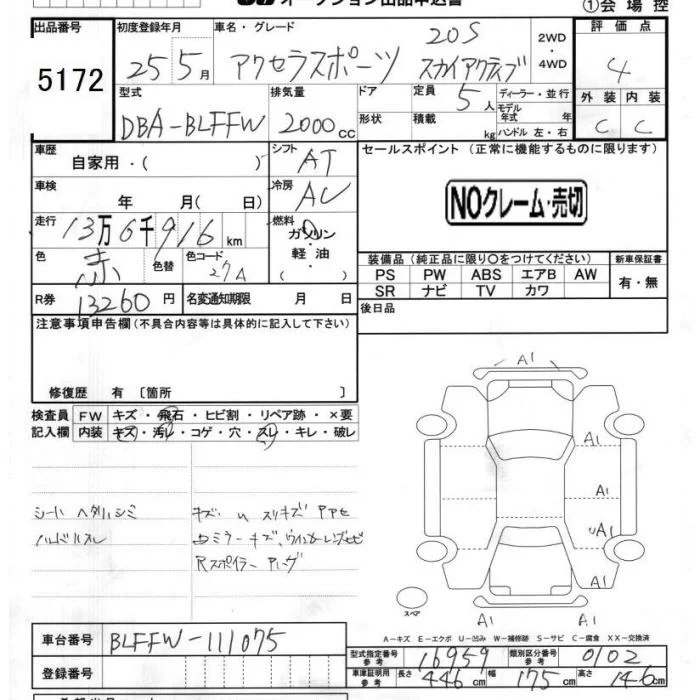 オークション出品申込書 ①会場控
出品番号 初度登録年月 車名・グレード 評価点
5172 25年5月 アクセラスポーツ 20S スカイアクティブ 2WD・4WD 4
型式 排気量 ドア 定員 5人 ディーラー・並行 外装 内装
DBA-BLFFW 2000cc 形状 積載 kg モデル年式 年 ハンドル 左・右 C C
車歴 自家用・( ) シフト AT セールスポイント (正常に機能するものに限ります)
車検 年 月( 日) 冷房 AC
NOクレーム・売切
走行 13万6千916km 燃料 ガソリン 軽油 ( )
装備品(純正品に限り〇をつけてください) 新車保証書
色 赤 色替 色コード 27A
PS PW ABS エアB AW 有・無
SR ナビ TV カワ
R券 13260円 名変通知期限 月 日 後日品
注意事項申告欄(不具合内容等は具体的に記入して下さい)
修復歴 有 〔箇所 〕
検査員 FW キズ・飛石・ヒビ割・リペア跡・×要
記入欄 内装 キズ・汚レ・コゲ・穴・スレ・キレ・破レ
シートヘタリ、シミ
ハンドルスレ
キズ
ミラーキズ、ウインカーレンズヒビ
Rスポイラー
A1
A1
A1
uA1
A1
A1 A1
スペア
A-キズ E-エクボ U-凹み W-補修跡 S-サビ C-腐食 XX-交換済
車台番号 BLFFW-111075
型式指定番号 参考 16959 類別区分番号 参考 0102
登録番号
車庫証明用 参考 長さ 446cm 幅 175cm 高さ 146cm